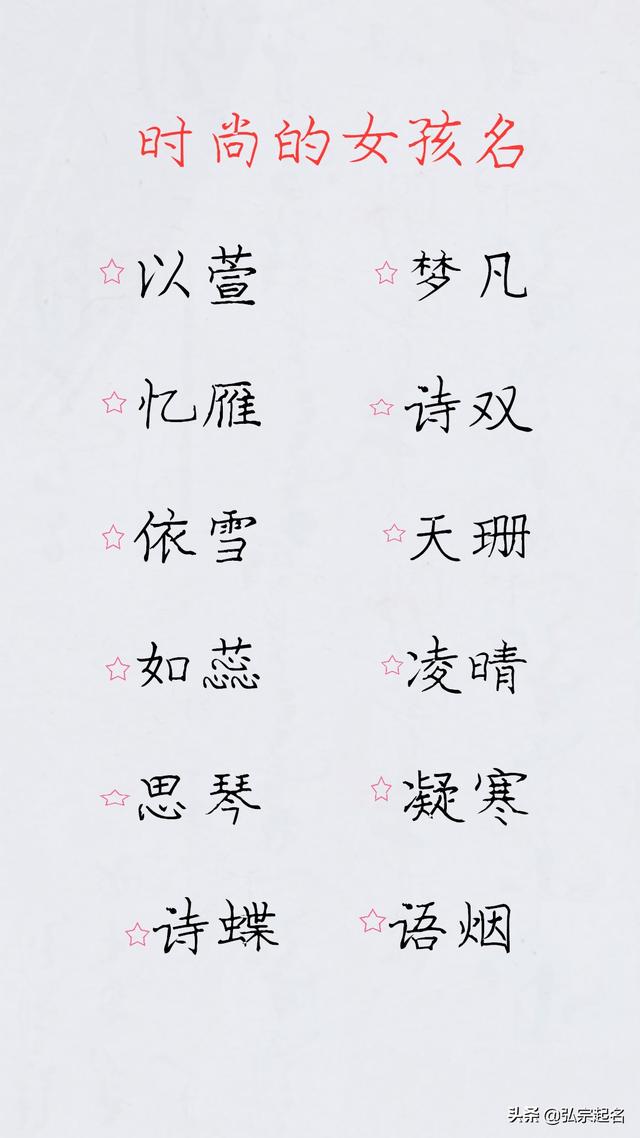 时尚的女孩名
☆以萱 ☆梦凡
☆忆雁 ☆诗双
☆依雪 ☆天珊
☆如蕊 ☆凌晴
☆思琴 ☆凝寒
☆诗蝶 ☆语烟
头条 @弘宗起名